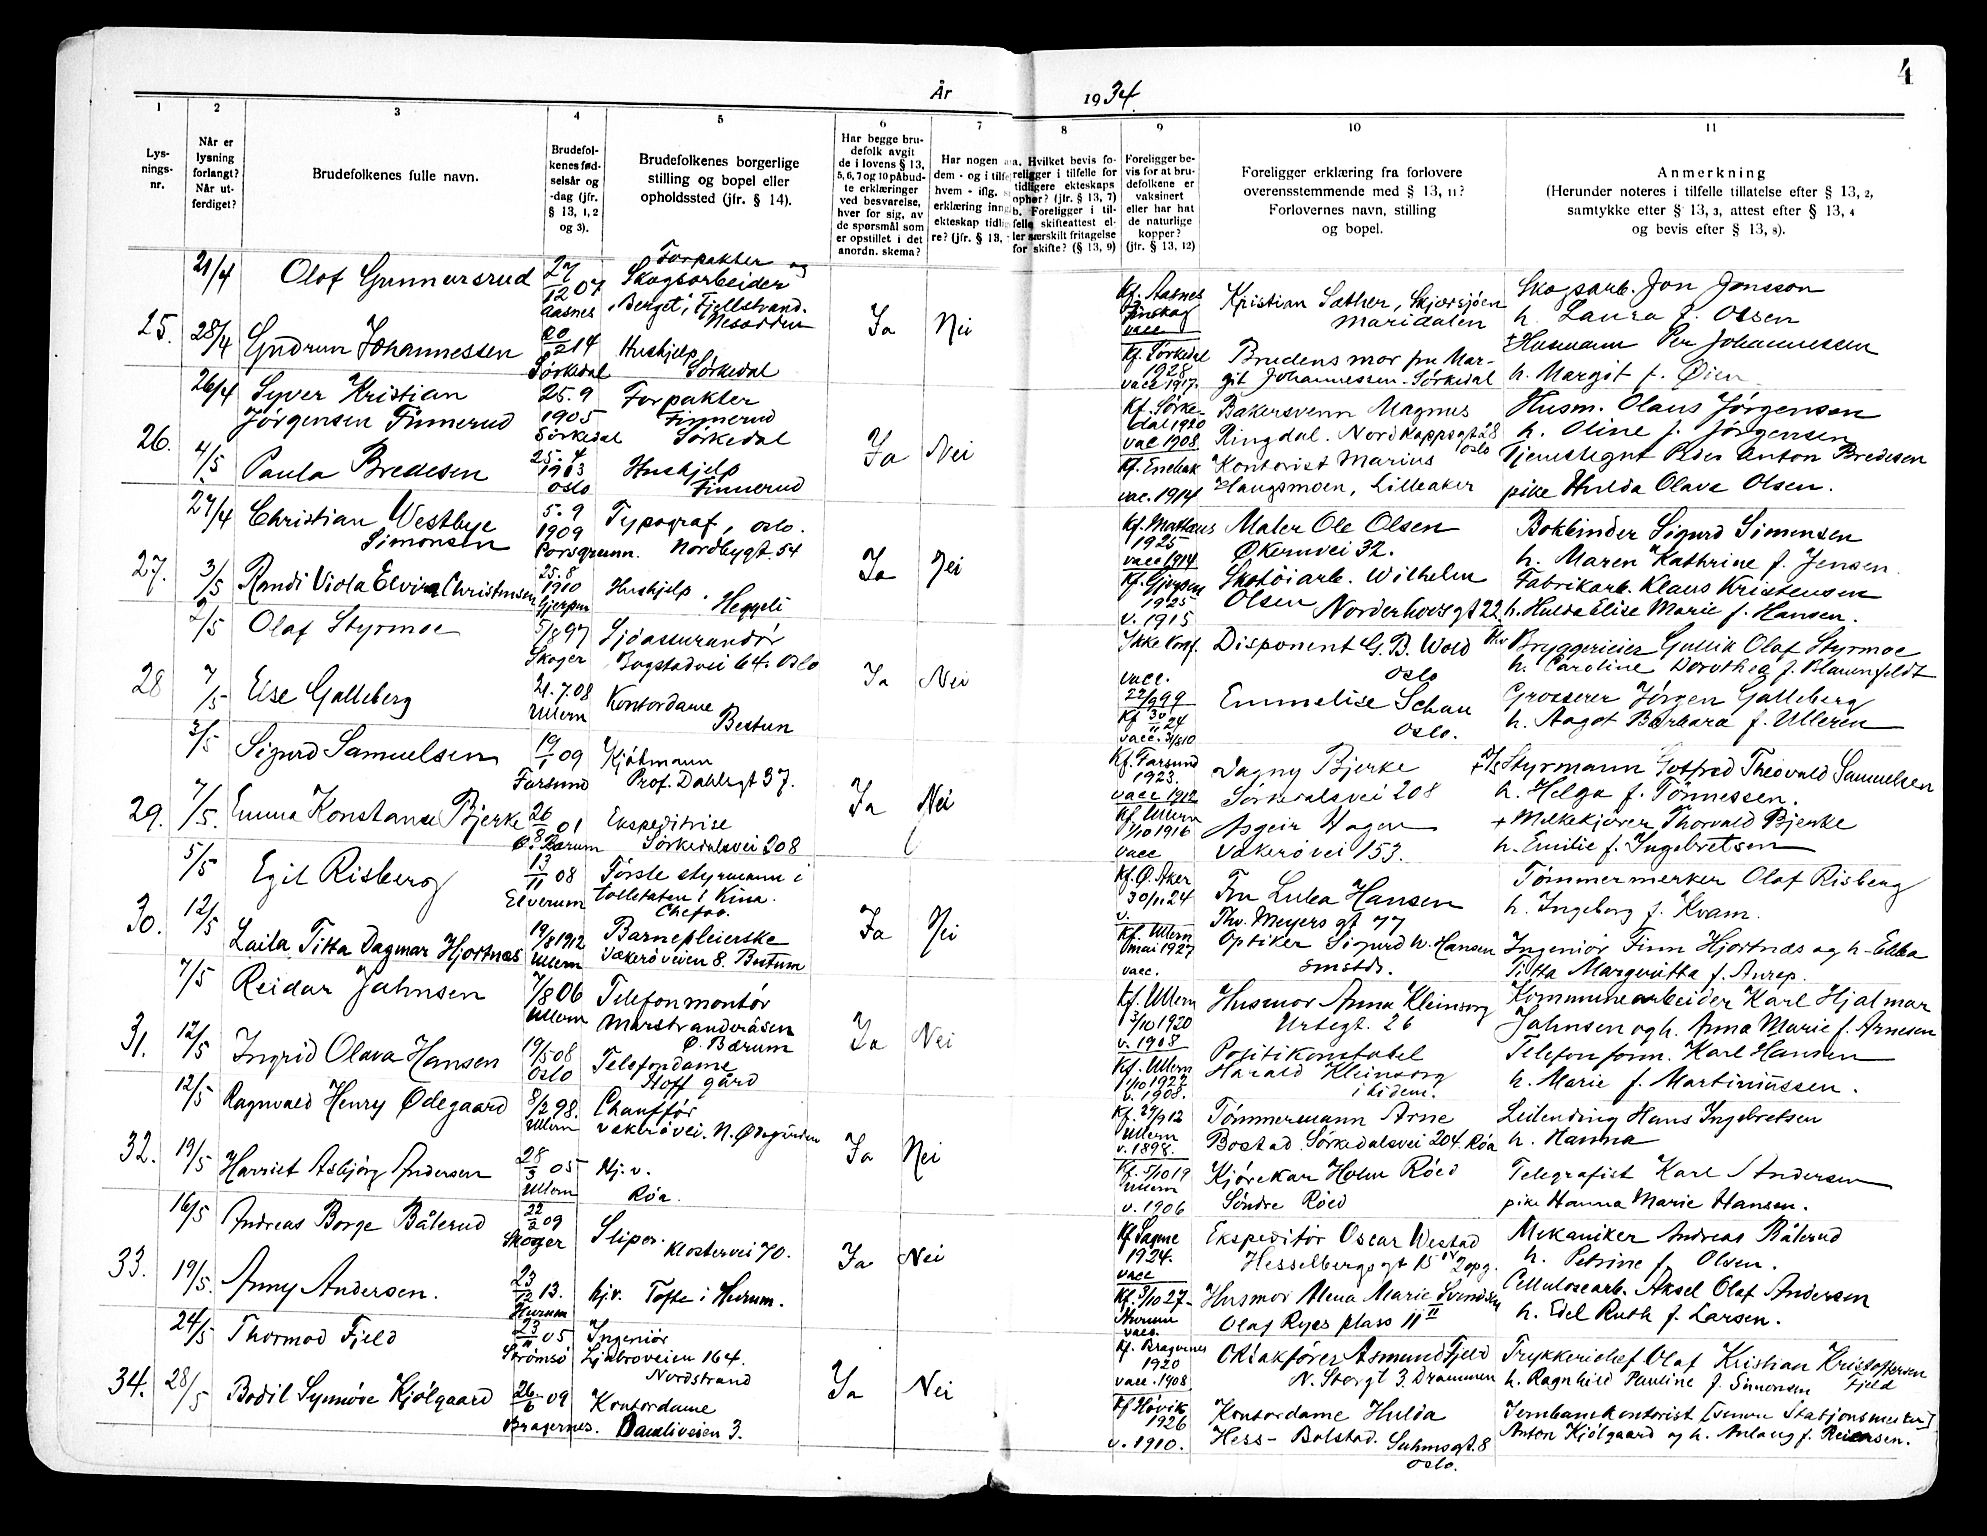 4
År 1934.
1 2 3 4 5 6 7 8 9 10 11
Lys-
nings-
nr.
Når er
lysning
forlangt?
Når ut-
ferdiget?
Brudefolkenes fulle navn.
Brudefol-
kenes fød-
selsår og
-dag (jfr.
§ 13, 1, 2
og 3).
Brudefolkenes borgerlige
stilling og bopel eller
opholdssted (jfr. § 14).
Har begge bru-
defolk avgit
de i lovens § 13,
5, 6, 7 og 10 påbud-
te erklæringer
ved besvarelse,
hver for sig, av
de spørsmål som
er opstillet i det
anordn. skema?
Har nogen
dem - og i tilfe
hvem - iflg.
erklæring inn
ekteskap tidlig
re? (jfr. § 13,
a. Hvilket bevis fo-
religger i tilfelle for
tidligere ekteskaps
ophør? (jfr. § 13, 7)
b. Foreligger i til-
felle skifteattest el-
ler særskilt fritagelse
for skifte? (§ 13, 9)
Foreligger be-
vis for at bru-
defolkene er
vaksinert
eller har hat
de naturlige
kopper?
(jfr. § 13, 12)
Foreligger erklæring fra forlovere
overensstemmende med § 13, 11?
Forlovernes navn, stilling
og bopel.
Anmerkning
(Herunder noteres i tilfelle tillatelse efter § 13, 2,
samtykke etter § 13, 3, attest efter § 13, 4
og bevis efter § 13, 8).
25.
21/4
28/4
Olof Gunnarsrud
27/12 07
Aasnes
Forpakter og
Skogsarbeider
Berget, Fjellstrand.
Nesodden
Ja Nei
Kf. Aasnes
Finskog
vacc
Kristian Sæther, Skjærsjøen
Maridalen
Skogsarb. Jon Jonsson
h. Laura f. Olsen
Gudrun Johannessen
20/2 14
Sörkedal
Hushjelp
Sörkedal
Kf. Sörkedal
1928
vacc 1917.
Brudens mor fru Mar-
git Johannessen - Sörkedal
+ Husmann Per Johannessen
h. Margit f. Øien
26.
26/4
4/5
Syver Kristian
Jörgensen Finnerud
25.9
1905
Sörkedal
Forpakter
Finnerud
Sörkedal
Ja Nei
Kf. Sörke-
dal 1920
vac 1908.
Bakersvenn Magnus
Ringdal. Nordkappsgt 28
Oslo
Husm. Olaus Jörgensen
h. Oline f. Jörgensen
Paula Bredesen
25.4
1903
Oslo
Hushjelp
Finnerud
Kf. Enebak
vac. 1914
Kontorist Marius
Haugsmoen, Lilleaker
Tjenestegut Peder Anton Bredesen
pike Hulda Olava Olsen.
27.
27/4
3/5
Christian Westbye
Simonsen
5.9
1909
Porsgrunn.
Typograf, Oslo.
Nordbygt. 54
Ja Nei
Kf. Matteus
1925
vacc 1914
Maler Ole Olsen
Økernvei 32.
Bokbinder Sigurd Simonsen
h. Maren Kathrine f. Jensen.
Randi Viola Elvira Christensen
25.8
1910
Gjerpen
Hushjelp.
Heggeli
Kf. Gjerpen
1925
v. 1915
Skotöiarb. Wilhelm
Olsen Norderhovsgt 22.
Fabrikarb. Klaus Kristensen
h. Hulda Elise Marie f. Hansen.
28
2/5
7/5
Olaf Styrmoe
5/8 97
Skoger
Sjöassurandör
Bogstadvei 64. Oslo
Ja Nei
Ikke Konf.
vacc.
22/9 99
Disponent G. B. Wold
Oslo
Bryggerieier Gullik Olaf Styrmoe
h. Caroline Dorothea f. Blauenfeldt
Else Galleberg
21.7.08
Ullern
Kontordame
Bestun
Kf 30/11 24
vacc. 31/8 10
Emmelise Schau
Oslo.
Grosserer Jörgen Galleberg
h. Aagot Barbara f. Ulleren
29.
3/5
7/5.
Sigurd Samuelsen
19/1 09
Farsund
Kjöbmann
Prof. Dahlsgt 37.
Ja Nei
Kf. Farsund
1923.
vacc 1912
Dagny Bjerke
Sörkedalsvei 208
Styrmann Gotfred Theovald Samuelsen
h. Helga f. Tönnessen.
Emma Konstance Bjerke
26/8 01
Ø. Bærum
Ekspeditrise
Sörkedalsvei 208
Kf. Ullern
1/10 1916
vacc
Asgeir Hagen
Vækerövei 153.
+ Melkekjører Thorvald Bjerke
h. Emilie f. Ingebretsen
30.
5/5
12/5
Egil Risberg
13/11 08
Elverum
Förste styrmann i
tolletaten i Kina.
Chefoo.
Ja Nei
Kf. Ø. Aker
30/11 24
v.
Fru Luka Hansen
Thv. Meyers gt 77
Tömmermerker Olaf Risberg
h. Ingeborg f. Kvam.
Laila Titta Dagmar Hjortnæs
19/8 1912
Ullern
Barnepleierske
Vækeröveien 8. Bestum
Kf. Ullern
mai 1927
vacc.
Optiker Sigurd W. Hansen
smstds.
Ingeniör Finn Hjortnæs og h. Ebba
Titta Margeritta f. Anrep.
31.
7/5
12/5
Reidar Jahnsen
7/8 06
Ullern
Telefonmontör
Marstranderåsen
Ø. Bærum
Ja Nei
Kf. Ullern
3/10 1920
v. 1908
Husmor Anna Kleinsorg
Urtegt. 26
Kommunearbeider Karl Hjalmar
Jahnsen og h. Anna Marie f. Arnesen
Ingrid Olava Hansen
19/5 08
Oslo
Telefondame
Hoff gård
Kf. Ullern
1/10 1922
v. 1908.
Politikonstabel
Harald Kleinsorg
ibidem.
Telefonform. Karl Hansen
h. Marie f. Martiniussen.
32.
12/5
19/5
Ragnvald Henry Ødegaard
8/2 98.
Ullern
Chauffør
Vækerövei. N. Ødegården
Ja Nei
Kf. 29/9 12
Ullern
v. 1898.
Tömmermann Arne
Bostad Sörkedalsvei 204. Röa
Leilending Hans Ingebretsen
h. Hanna
Harriet Asbjörg Andersen
28/3 05
Ullern
Hj. v.
Röa.
Kf. 5/10 19
Ullern
v. 1906
Kjörekar Holm Röed
Söndre Röed
Telegrafist Karl Andersen
pike Hanna Marie Hansen.
33.
16/5
19/5.
Andreas Borge Bålerud
22/2 09
Skoger
Sliper.
Klostervei 70.
Ja Nei
Kf. Sagene
1924.
vacc
Ekspeditör Oscar Westad
Hesselbergs gt 15 IV 2 opg.
Mekaniker Andreas Bålerud
h. Petrine f. Olsen.
Anny Andersen.
23/12 13.
Hurum
hj. v. Tofte i Hurum.
Kf. 3/10 27 -
Hurum
vacc.
Husmor Mena Marie Svendsen
Olaf Ryes plass 11 II
Cellulosearb. Aksel Olaf Andersen
h. Edel Ruth f. Larsen.
34.
24/5
28/5
Thormod Fjeld
23/11 05
Strömsö
Ingeniör
Ljabroveien 164.
Nordstrand
Ja Nei
Kf. Bragernes
1920
vacc. 1908
Asmund Fjeld
N. Storgt 3. Drammen
Trykkerichef Olaf Kristian Kristoffersen
Fjeld
h. Ragnhild Pauline f. Simonsen
Bodil Synnöve Kjölgaard
26/6 09
Bragernes.
Kontordame
Damliveien 3.
Kf Hövik
1926
v. 1910.
Kontordame Hulda
Hess - Bolstad. Suhmsgt. 8
Oslo.
Jernbanekontorist [senere Stasjonsmester]
Anton Kjölgaard og h. Anlaug f. Reiersen.